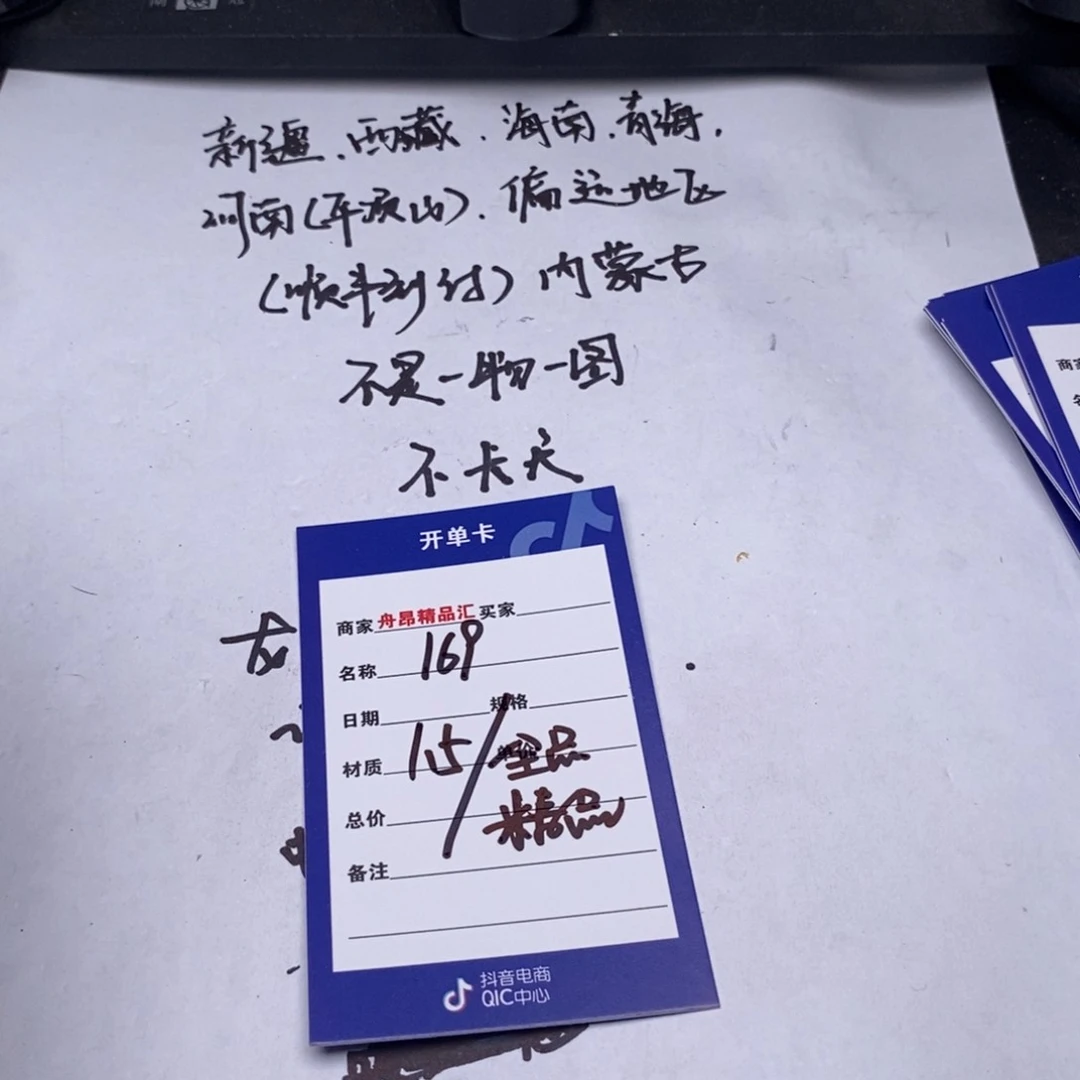 新疆、西藏、海南、青海、
河南(平顶山)、偏远地区
(顺丰到付)内蒙古
不是一物一图
不卡天
开单卡
商家 舟昂精品汇 买家
名称 169
日期 规格
材质 115/空点
总价 精品
备注
抖音电商
QIC中心
商家